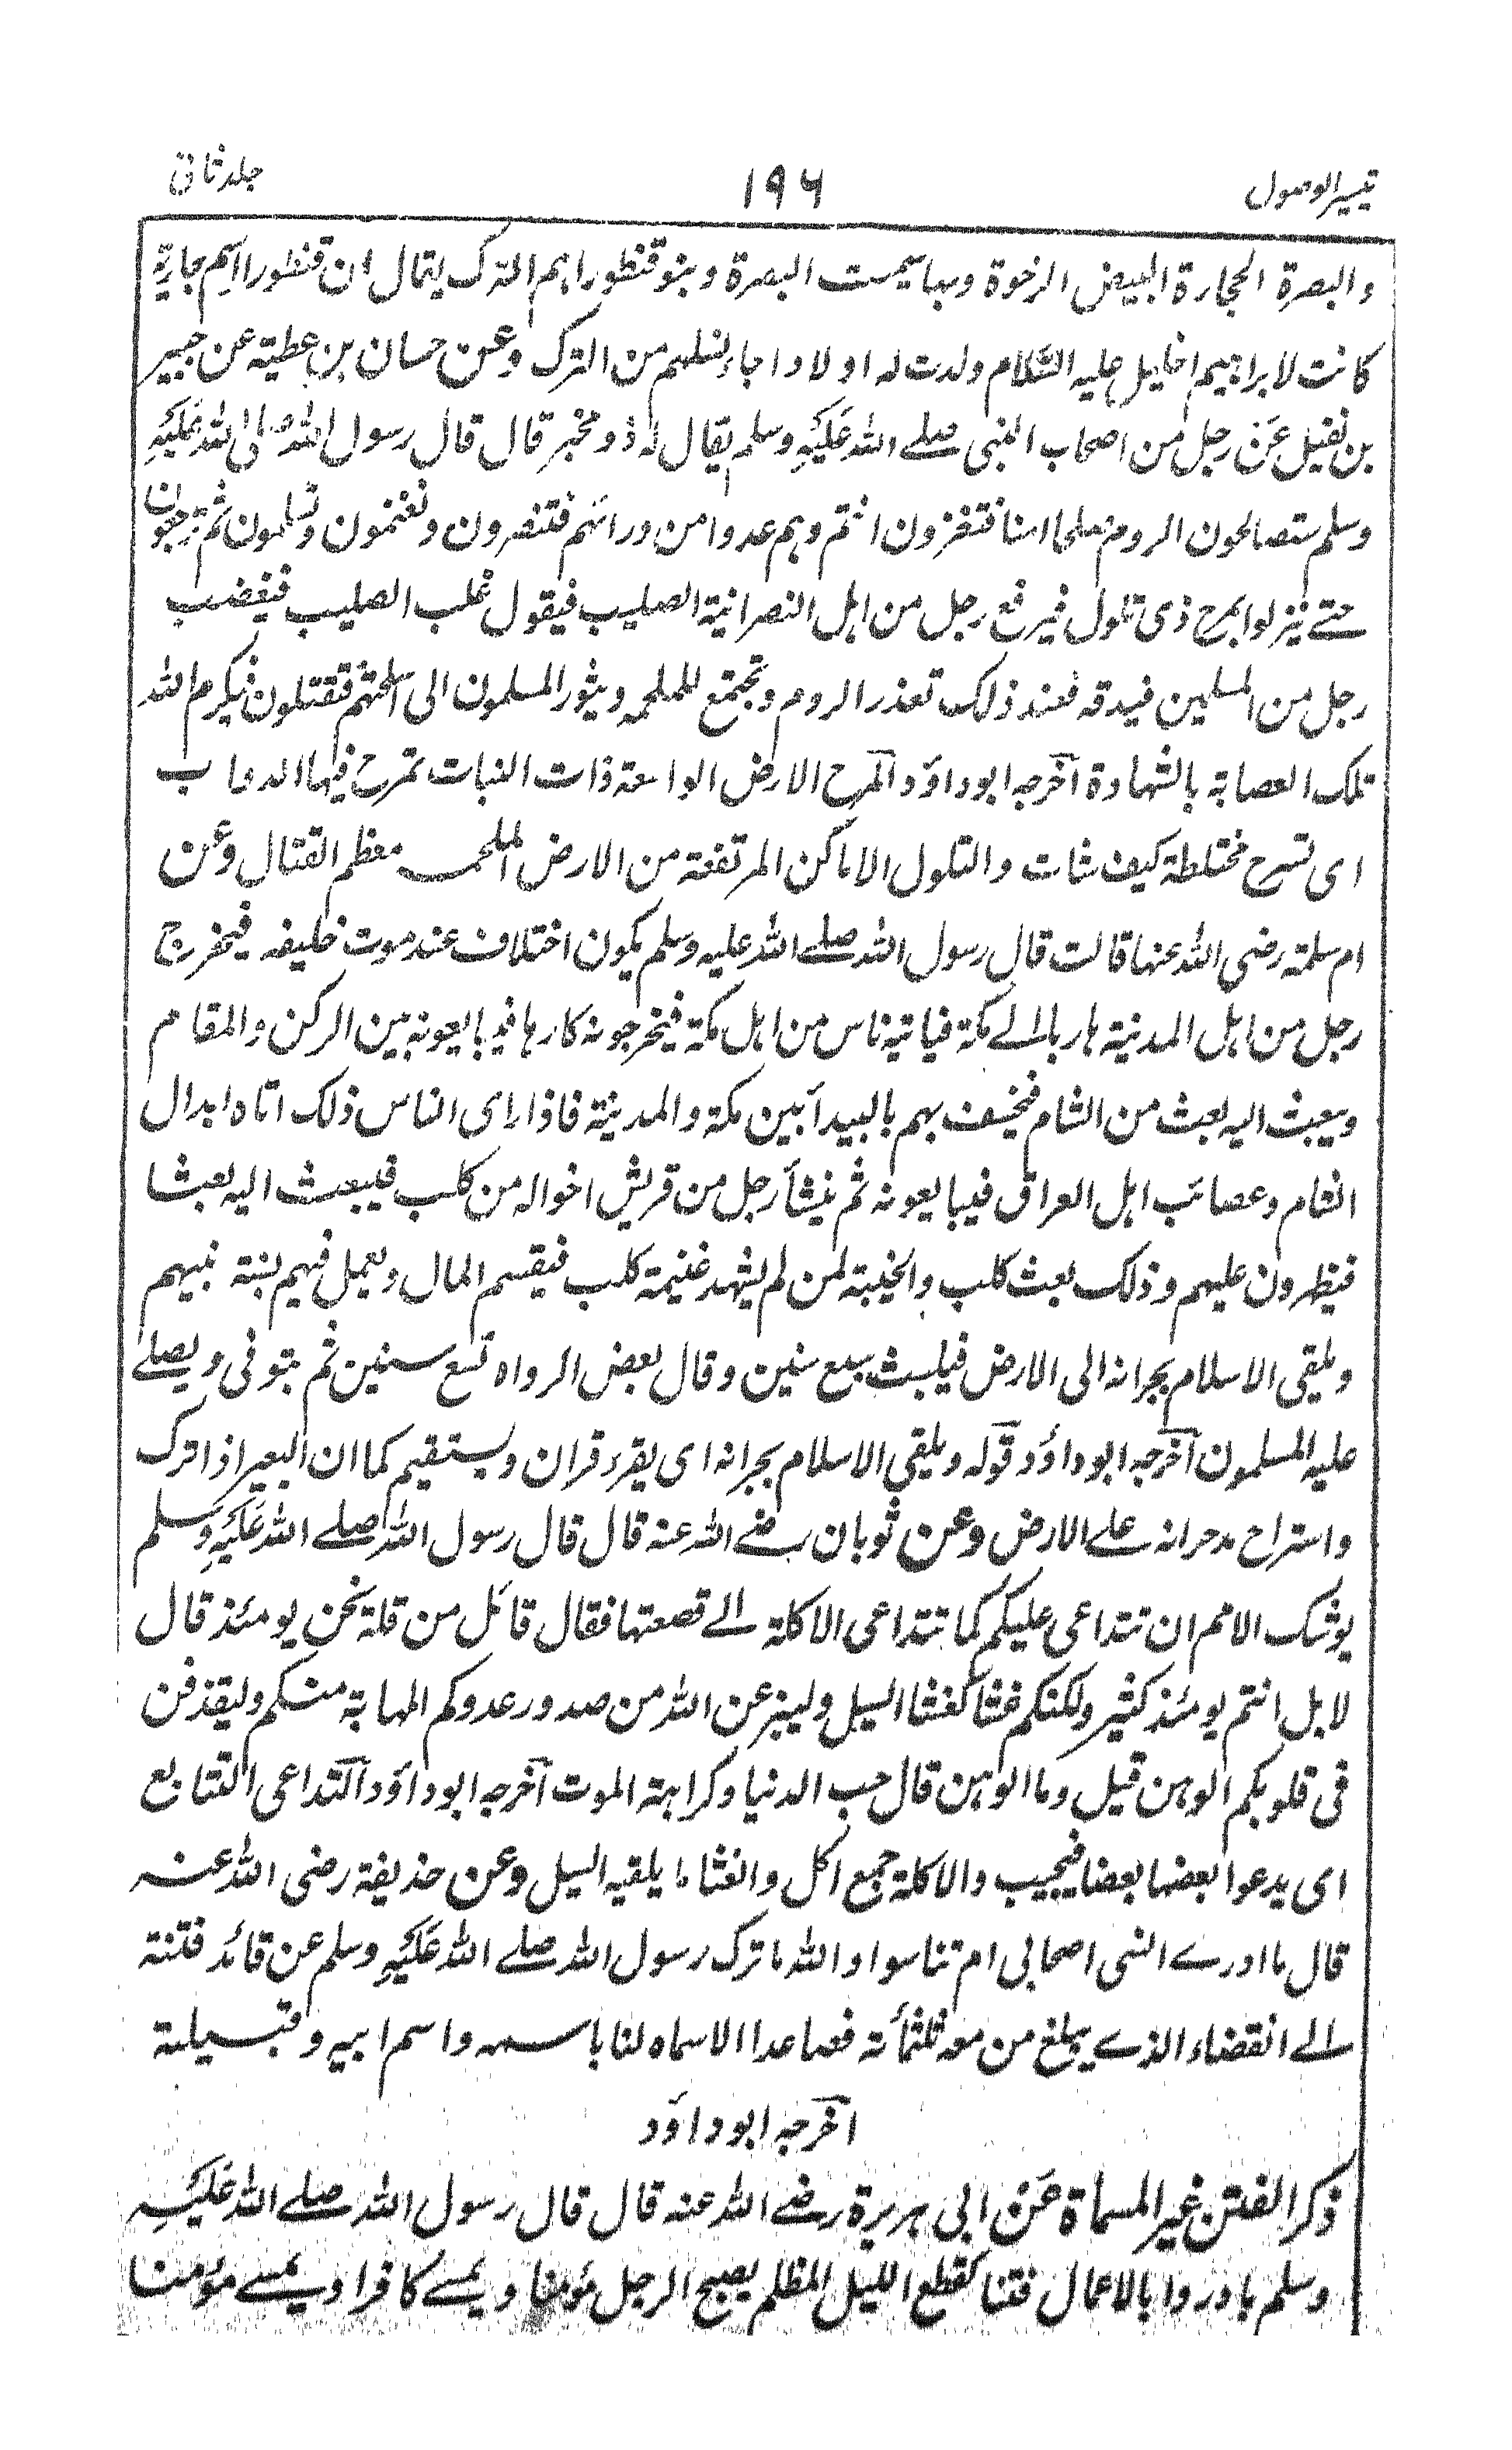 تيسير الوصول ١٩٦ جلد ثانى
والبصرة الحجارة البيض الرخوة وبها سميت البصرة وبنو قنطورا هم الترك يقال ان قنطورا اسم جارية
كانت لابراهيم الخليل عليه السَّلام ولدت له اولادا جاء نسلهم من الترك وعن حسان بن عطية عن جبير
بن نفيل عَن رجل من اصحاب النبى صلے الله عَلَيْهِ وسلم يقال له ذو مخبر قال قال رسول الله صلى الله عَلَيْهِ
وسلم ستصالحون الروم صلحا امنا فتغزون انتم وهم عدوا من ورائهم فتنصرون وتغنمون وتسلمون ثم ترجعون
حتے تنزلوا بمرج ذى تلول فيرفع رجل من اهل النصرانية الصليب فيقول غلب الصليب فيغضب
رجل من المسلمين فيدقه فعند ذلك تغدر الروم وتجتمع للملحمه ويثور المسلمون الى اسلحتهم فيقتتلون فيكرم الله
تلك العصابة بالشهادة آخرجه ابوداؤد آلمرج الارض الواسعة ذات النبات تمرح فيها الدواب
اى تسرح مختلطة كيف شاءت والتلول الاماكن المرتفعة من الارض الملحمه معظم القتال وعن
ام سلمة رضى الله عنها قالت قال رسول الله صلے الله عليه وسلم يكون اختلاف عند موت خليفه فيخرج
رجل من اهل المدينة هاربا الے مكة فياتيه ناس من اهل مكة فيخرجونه كارها فيبايعونه بين الركن والمقام
ويبعث اليه بعث من الشام فيخسف بهم بالبيدآ بين مكة والمدينة فاذا راى الناس ذلك اتاه ابدال
الشام وعصائب اهل العراق فيبايعونه ثم ينشأ رجل من قريش اخواله من كلب فيبعث اليه بعثا
فيظهرون عليهم وذلك بعث كلب والخيبة لمن لم يشهد غنيمة كلب فيقسم المال ويعمل فيهم بسنة نبيهم
ويلقى الاسلام بجرانه الى الارض فيلبث سبع سنين وقال بعض الرواه تسع سنين ثم يتوفى ويصلے
عليه المسلمون آخرجه ابوداؤد قوله ويلقى الاسلام بجرانه اى يقر قران ويستقيم كما ان البعير اذا ترك
واستراح مد جرانه علے الارض وعن ثوبان رضے الله عنه قال قال رسول الله صلے الله عَلَيْهِ وَسلم
يوشك الامم ان تتداعى عليكم كما تتداعى الاكلة الے قصعتها فقال قائل من قلة نحن يومئذ قال
لا بل انتم يومئذ كثير ولكنكم غثا كغثا السيل ولينزعن الله من صدور عدوكم المهابة منكم وليقذفن
فى قلوبكم الوهن قيل وما الوهن قال حب الدنيا وكراهة الموت آخرجه ابوداؤد آلتداعى التتابع
اى يدعوا بعضها بعضا فيجيب والاكلة جمع اكل والغثا ما يلقيه السيل وعن حذيفة رضى الله عنه
قال ما ادرے انسى اصحابى ام تناسوا والله ما ترك رسول الله صلے الله عَلَيْهِ وسلم عن قائد فتنة
الے انقضاء الذے يبلغ من معه ثلثمأئة فصاعدا الا سماه لنا باسمه واسم ابيه وقبيلته
آخرجه ابوداؤد
ذكر الفتن غير المسماة عَن ابى هريرة رضے الله عنه قال قال رسول الله صلے الله عَلَيْهِ
وسلم بادروا بالاعمال فتنا كقطع الليل المظلم يصبح الرجل مؤمنا ويمسے كافرا ويمسے مؤمنا